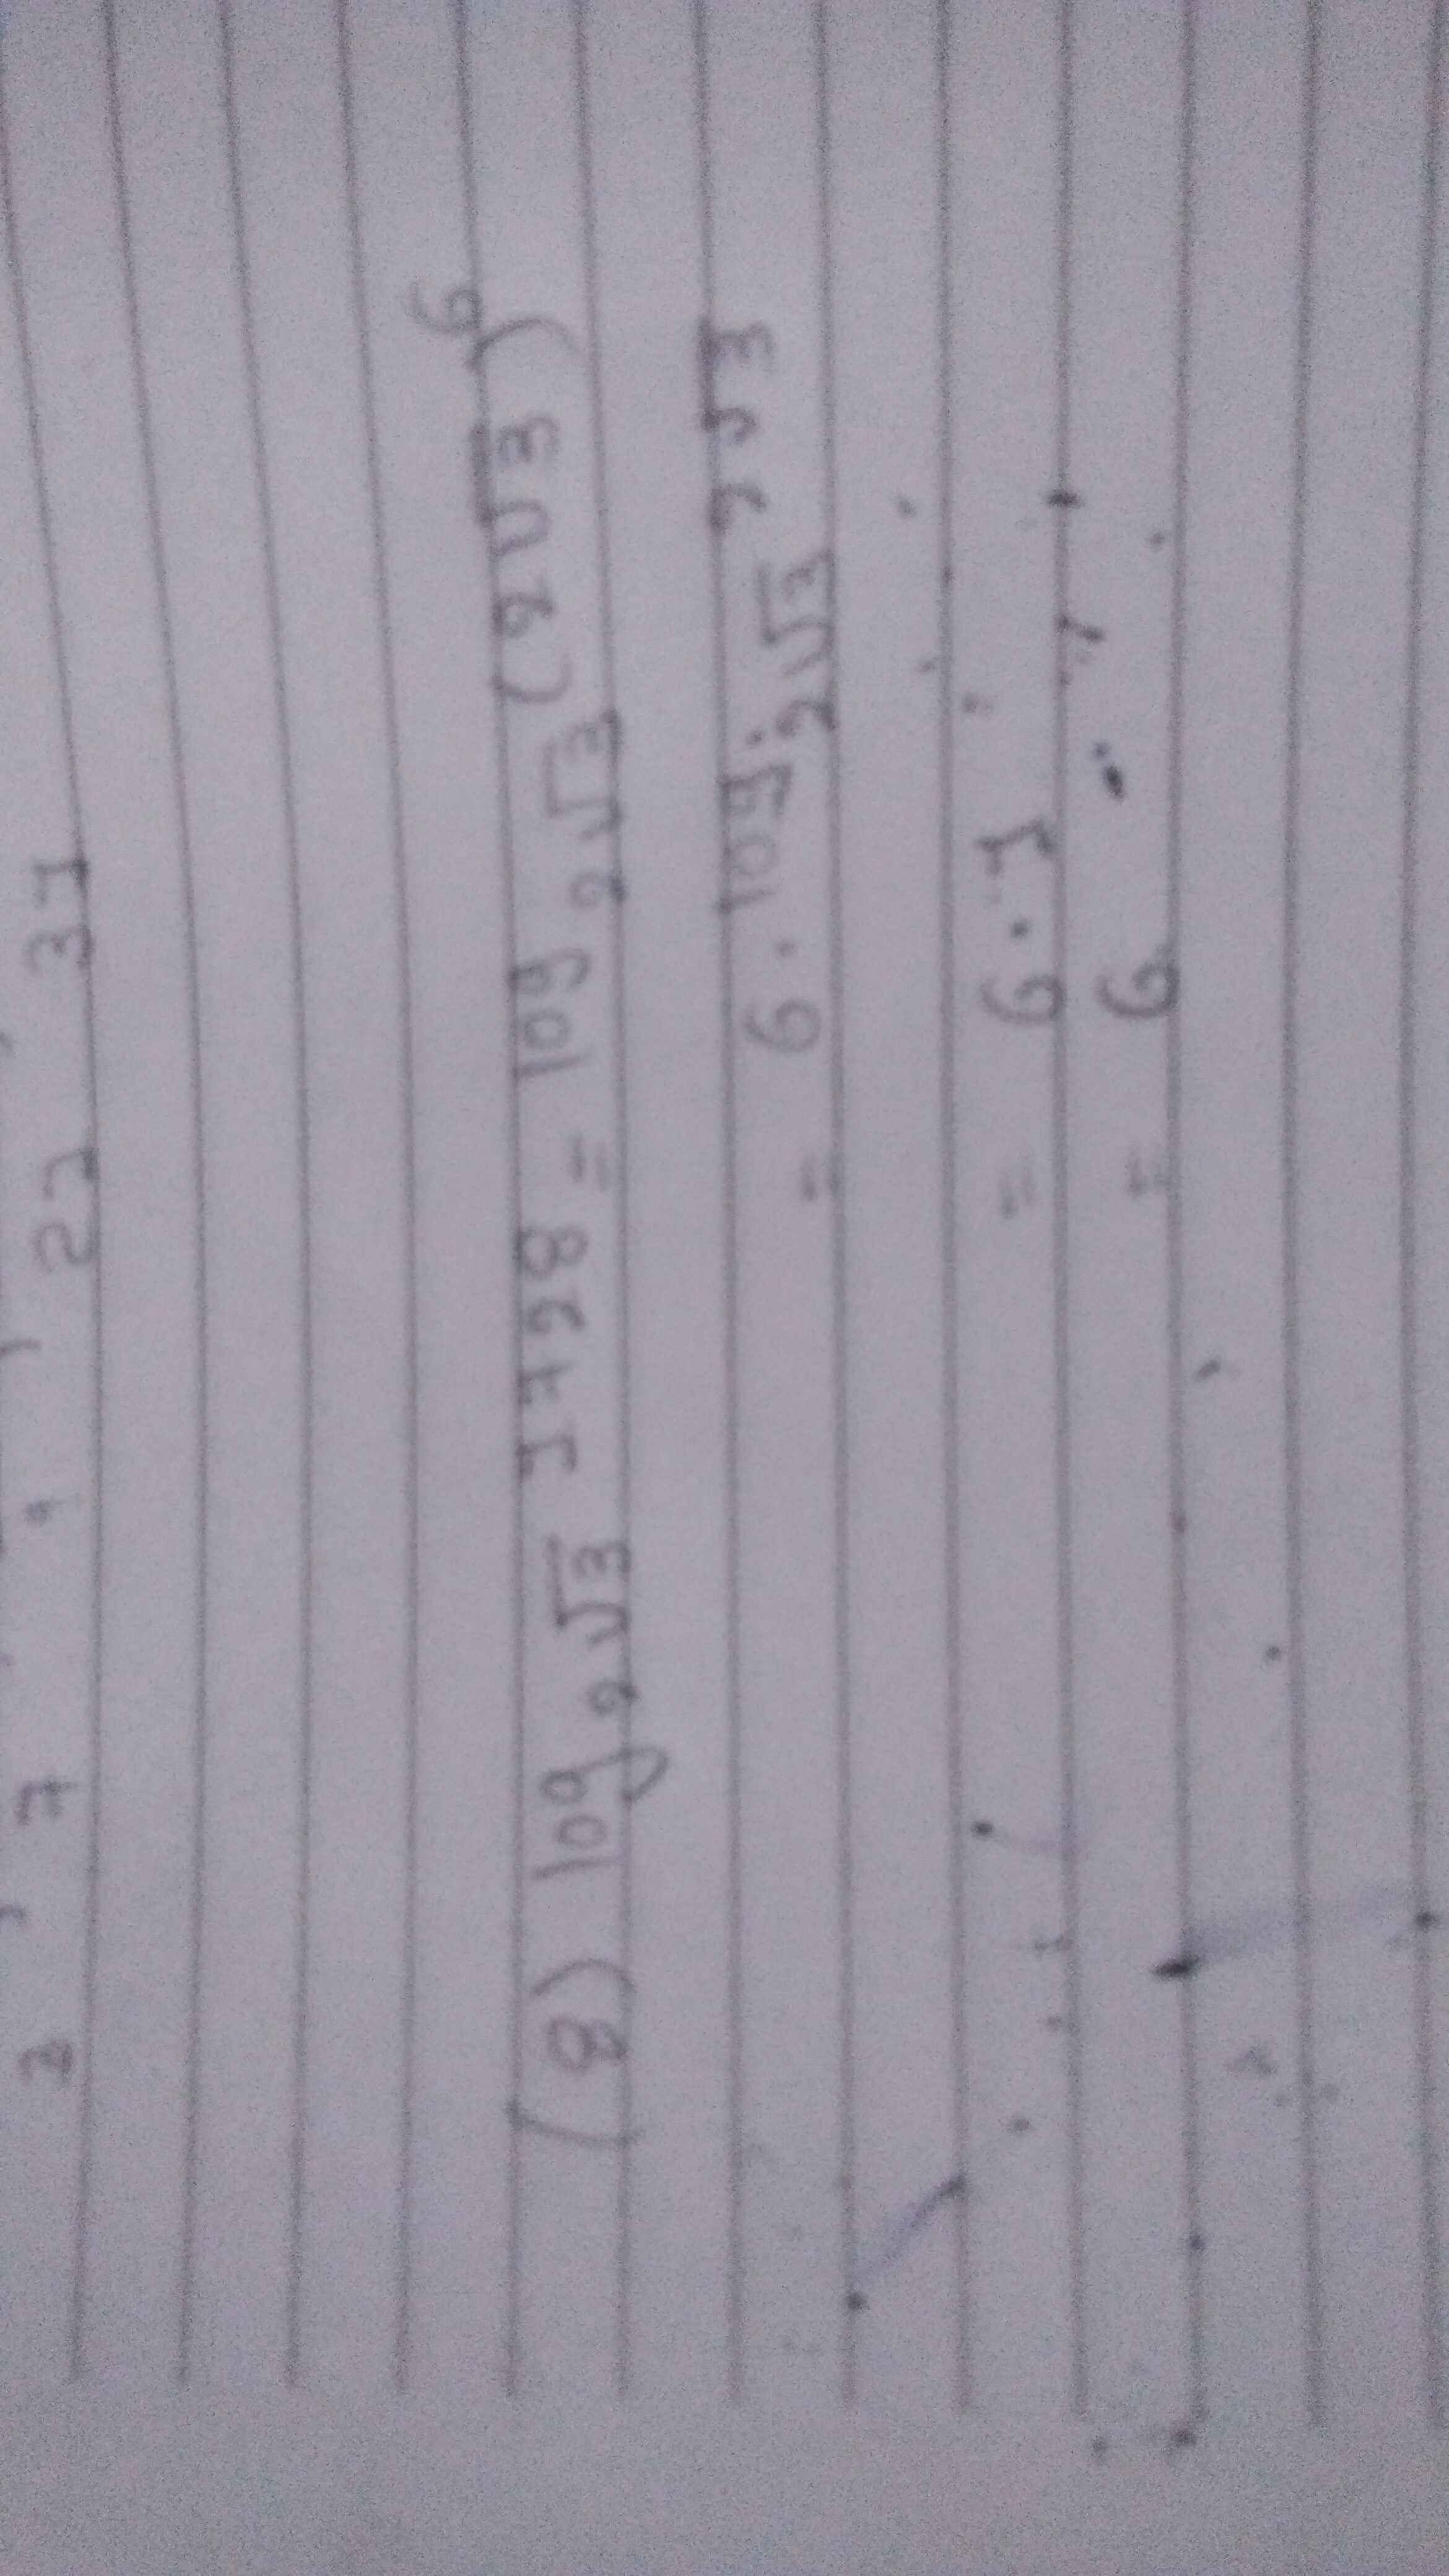 3 , 7 , 22 , 31
(8) log 2√3 1728 = log 2√3 (2√3)^6
= 6 · log 2√3 2√3
= 6 · 1
= 6